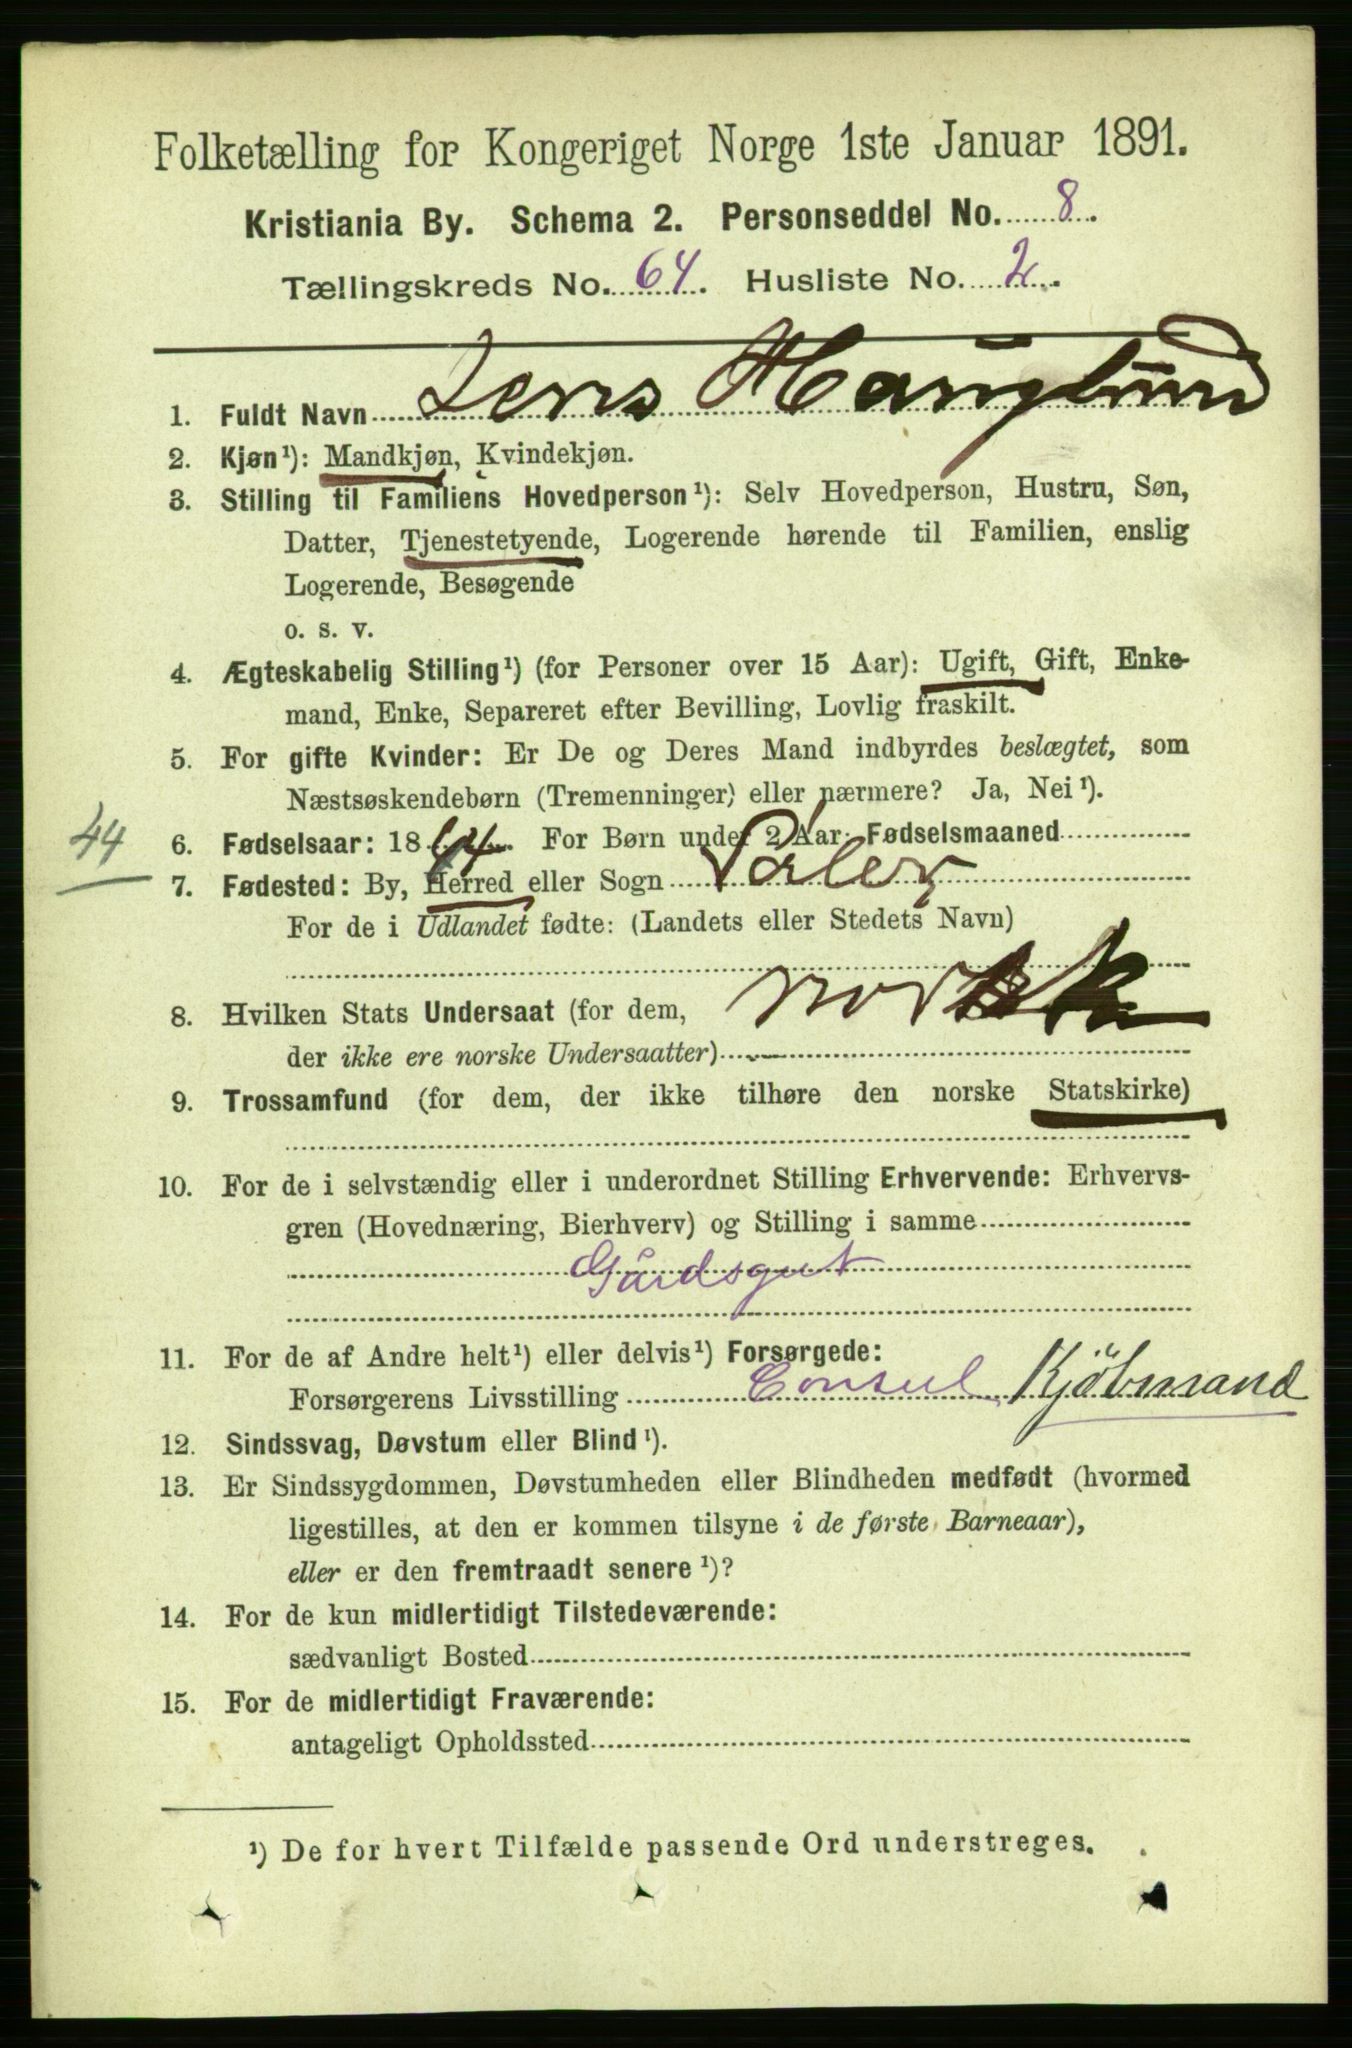 Folketælling for Kongeriget Norge 1ste Januar 1891.
Kristiania By. Schema 2. Personseddel No. 8.
Tællingskreds No. 64. Husliste No. 2.
1. Fuldt Navn Jens Hauglund
2. Kjøn¹): Mandkjøn, Kvindekjøn.
3. Stilling til Familiens Hovedperson¹): Selv Hovedperson, Hustru, Søn,
Datter, Tjenestetyende, Logerende hørende til Familien, enslig
Logerende, Besøgende
o. s. v.
4. Ægteskabelig Stilling¹) (for Personer over 15 Aar): Ugift, Gift, Enke-
mand, Enke, Separeret efter Bevilling, Lovlig fraskilt.
5. For gifte Kvinder: Er De og Deres Mand indbyrdes beslægtet, som
Næstsøskendebørn (Tremenninger) eller nærmere? Ja, Nei¹).
44
6. Fødselsaar: 1864. For Børn under 2 Aar: Fødselsmaaned
7. Fødested: By, Herred eller Sogn Våler
For de i Udlandet fødte: (Landets eller Stedets Navn)
8. Hvilken Stats Undersaat (for dem, norsk
der ikke ere norske Undersaatter)
9. Trossamfund (for dem, der ikke tilhøre den norske Statskirke)
10. For de i selvstændig eller i underordnet Stilling Erhvervende: Erhvervs-
gren (Hovednæring, Bierhverv) og Stilling i samme
Gårdsgut
11. For de af Andre helt¹) eller delvis¹) Forsørgede:
Forsørgerens Livsstilling Consul, Kjöbmand
12. Sindssvag, Døvstum eller Blind¹).
13. Er Sindssygdommen, Døvstumheden eller Blindheden medfødt (hvormed
ligestilles, at den er kommen tilsyne i de første Barneaar),
eller er den fremtraadt senere¹)?
14. For de kun midlertidigt Tilstedeværende:
sædvanligt Bosted
15. For de midlertidigt Fraværende:
antageligt Opholdssted
¹) De for hvert Tilfælde passende Ord understreges.